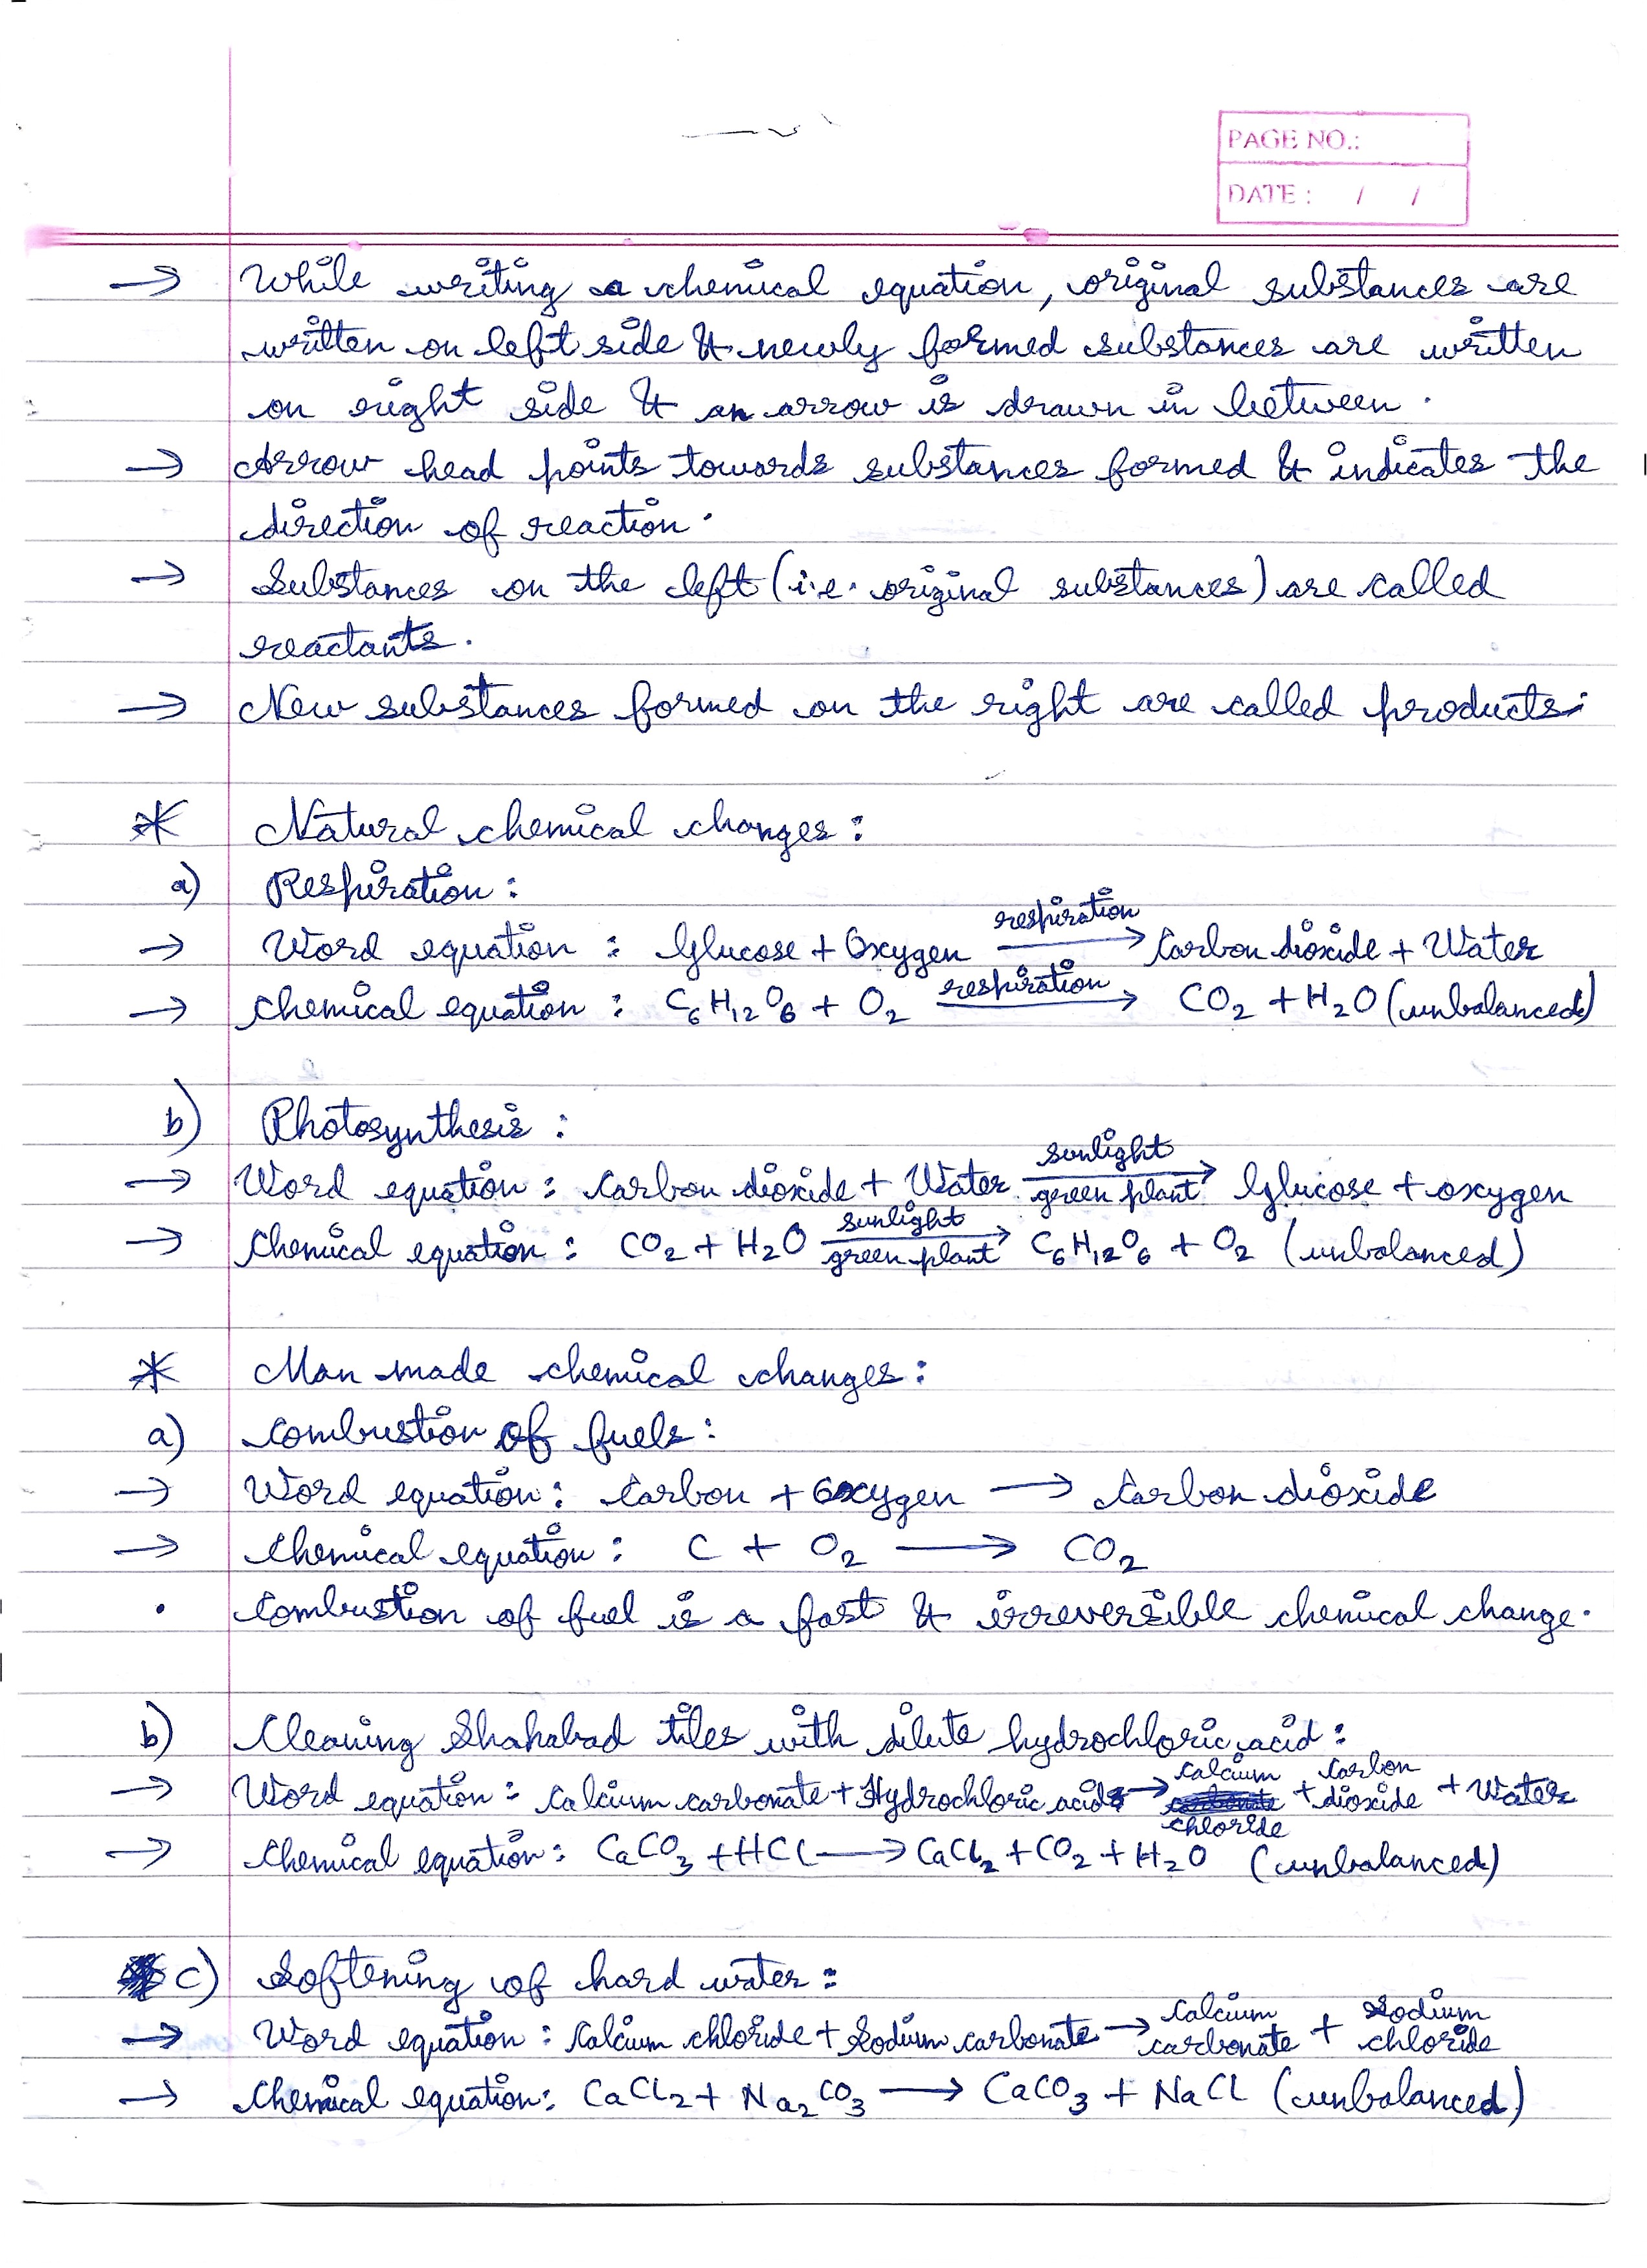 PAGE NO.:
DATE : / /
→ While writing a chemical equation, original substances are
written on left side & newly formed substances are written
on right side & an arrow is drawn in between.
→ Arrow head points towards substances formed & indicates the
direction of reaction.
→ Substances on the left (i.e. original substances) are called
reactants.
→ New substances formed on the right are called products.
* Natural chemical changes :
a) Respiration :
→ Word equation : Glucose + Oxygen —respiration→ Carbon dioxide + Water
→ Chemical equation : C₆H₁₂O₆ + O₂ —respiration→ CO₂ + H₂O (unbalanced)
b) Photosynthesis :
→ Word equation : Carbon dioxide + Water —sunlight / green plant→ Glucose + oxygen
→ Chemical equation : CO₂ + H₂O —sunlight / green plant→ C₆H₁₂O₆ + O₂ (unbalanced)
* Man made chemical changes :
a) Combustion of fuels :
→ Word equation : Carbon + Oxygen → Carbon dioxide
→ Chemical equation : C + O₂ → CO₂
• Combustion of fuel is a fast & irreversible chemical change.
b) Cleaning Shahabad tiles with dilute hydrochloric acid :
→ Word equation : Calcium carbonate + Hydrochloric acid → Calcium chloride + Carbon dioxide + Water
→ Chemical equation : CaCO₃ + HCl → CaCl₂ + CO₂ + H₂O (unbalanced)
c) Softening of hard water :
→ Word equation : Calcium chloride + Sodium carbonate → Calcium carbonate + Sodium chloride
→ Chemical equation : CaCl₂ + Na₂CO₃ → CaCO₃ + NaCl (unbalanced)